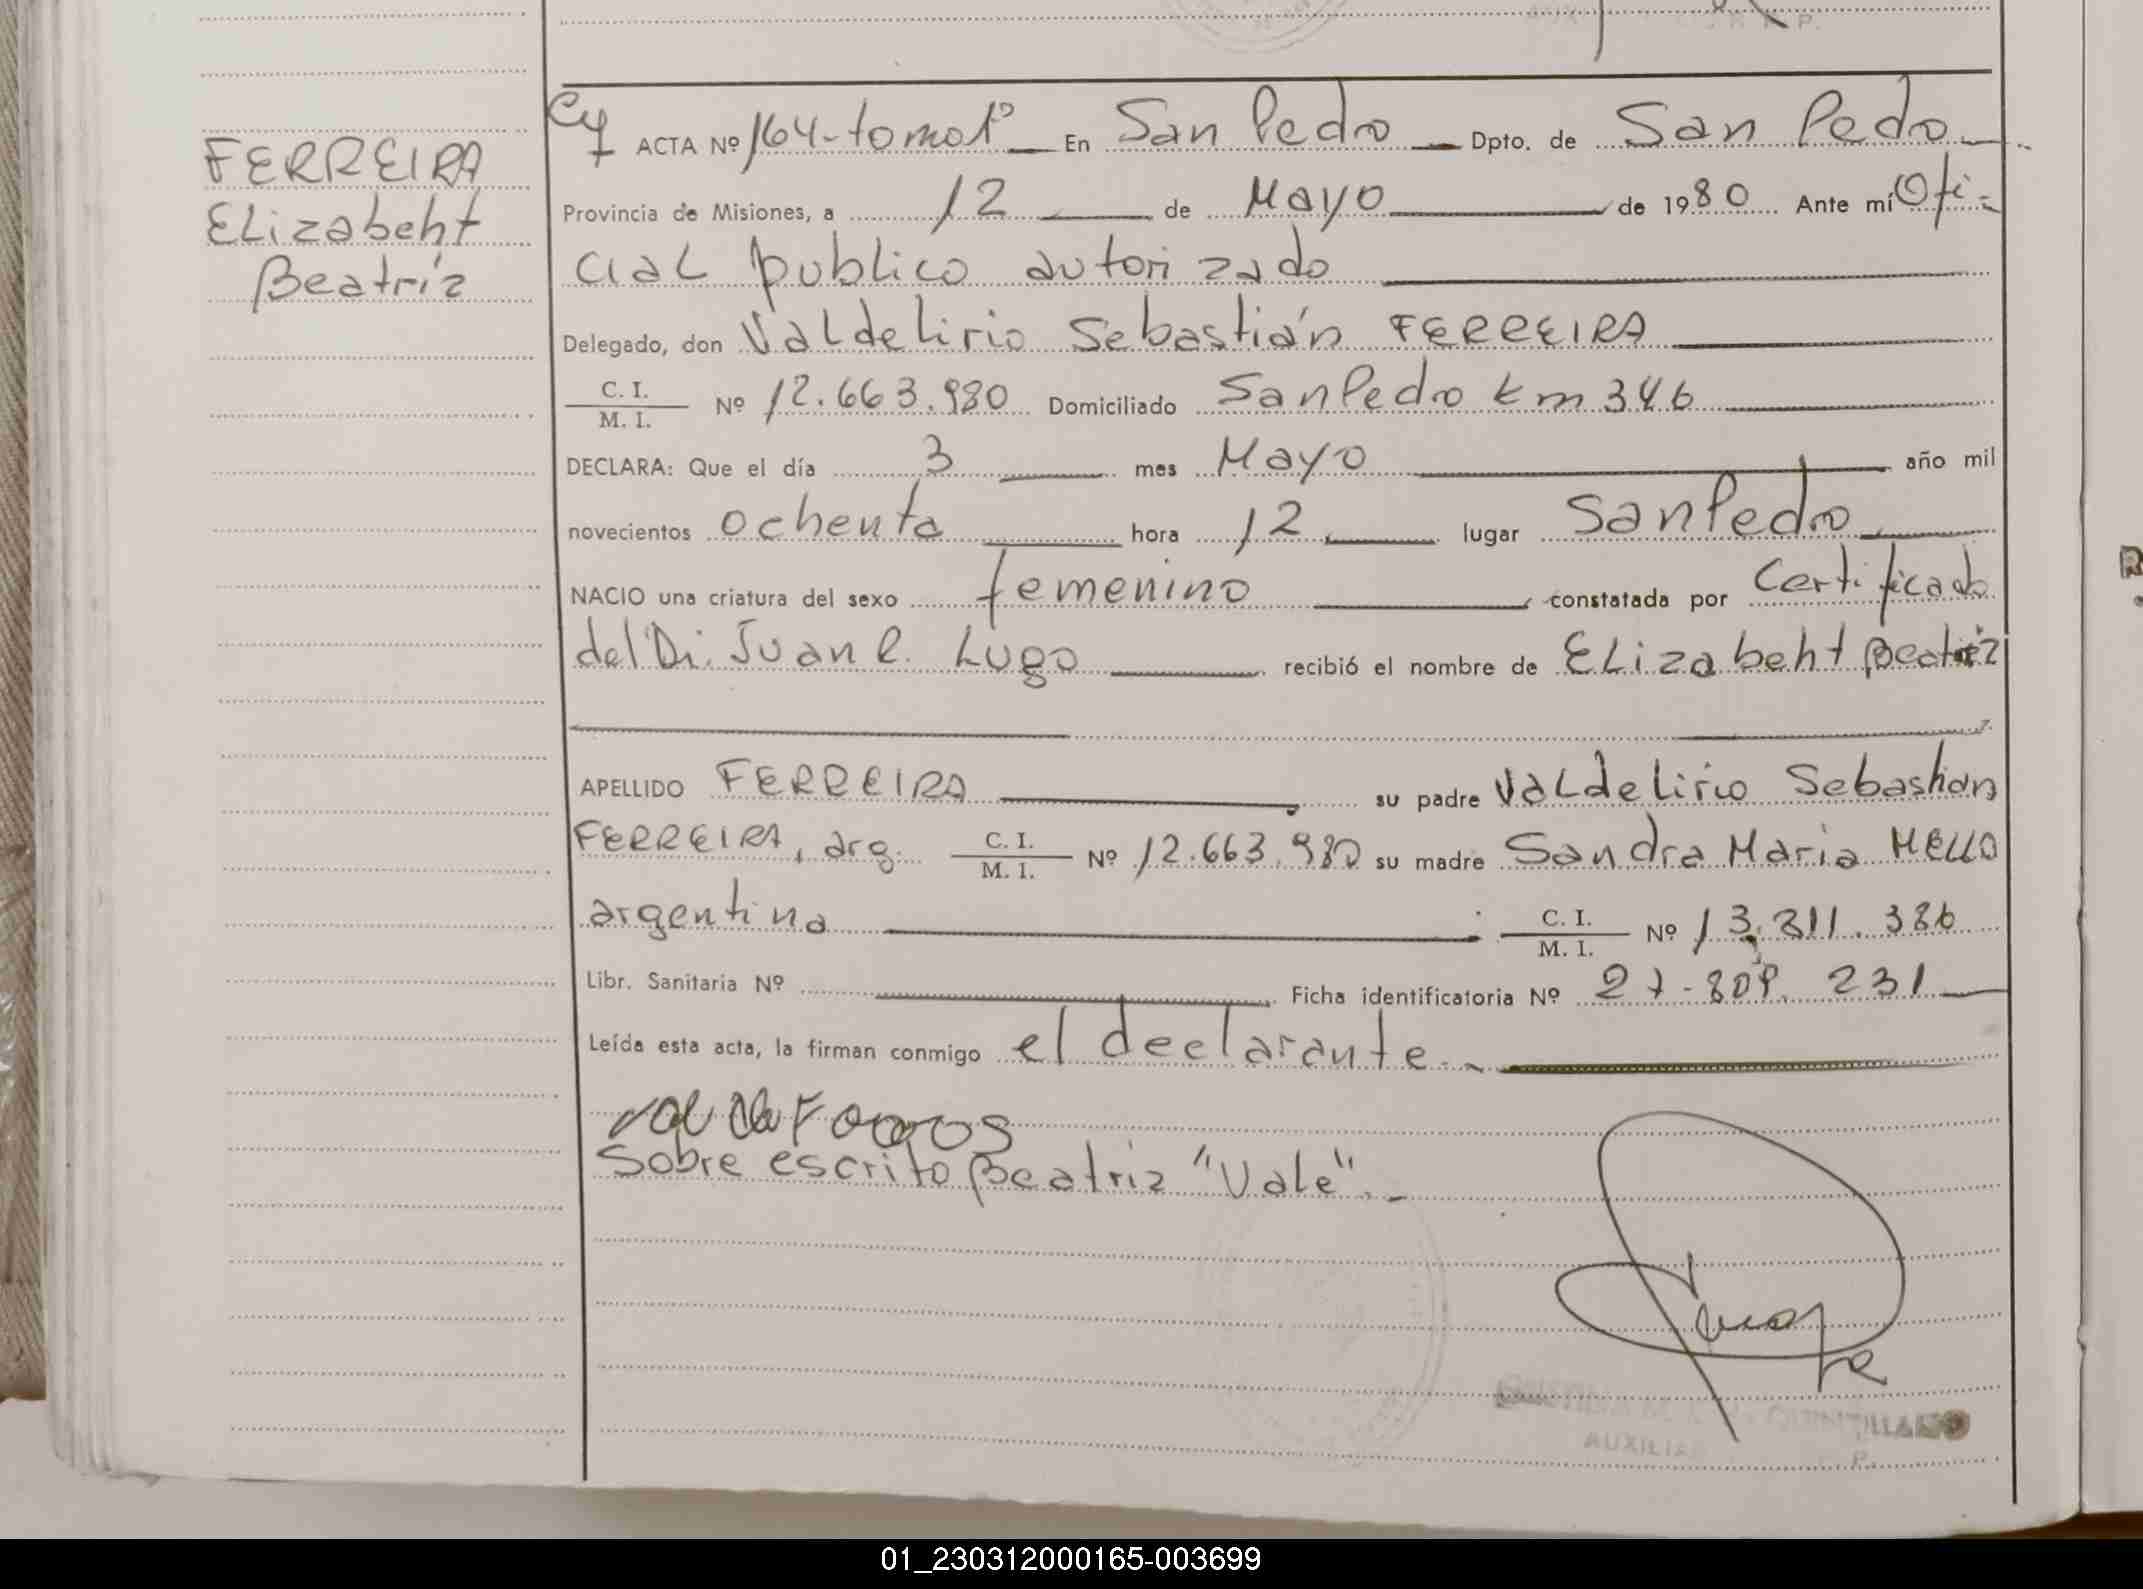 FERREIRA
Elizabeht
Beatríz
ACTA Nº 164-tomo 1º En San Pedro Dpto. de San Pedro
Provincia de Misiones, a 12 de Mayo de 1980 Ante mí Ofi-
cial publico autorizado
Delegado, don Valdelirio Sebastián FERREIRA
C. I. / M. I. Nº 12.663.980 Domiciliado San Pedro km 346
DECLARA: Que el día 3 mes Mayo año mil
novecientos ochenta hora 12 lugar San Pedro
NACIO una criatura del sexo femenino constatada por Certificado
del Dr. Juan R. Lugo recibió el nombre de Elizabeht Beatriz
APELLIDO FERREIRA su padre Valdelirio Sebastian
FERREIRA, arg. C. I. / M. I. Nº 12.663.980 su madre Sandra Maria MELLO
argentina C. I. / M. I. Nº 13.811.386
Libr. Sanitaria Nº Ficha identificatoria Nº 27-809.231
Leída esta acta, la firman conmigo el declarante.-
Sobre escrito Beatriz "Vale".-
QUINTILLANO
AUXILIAR
01_230312000165-003699